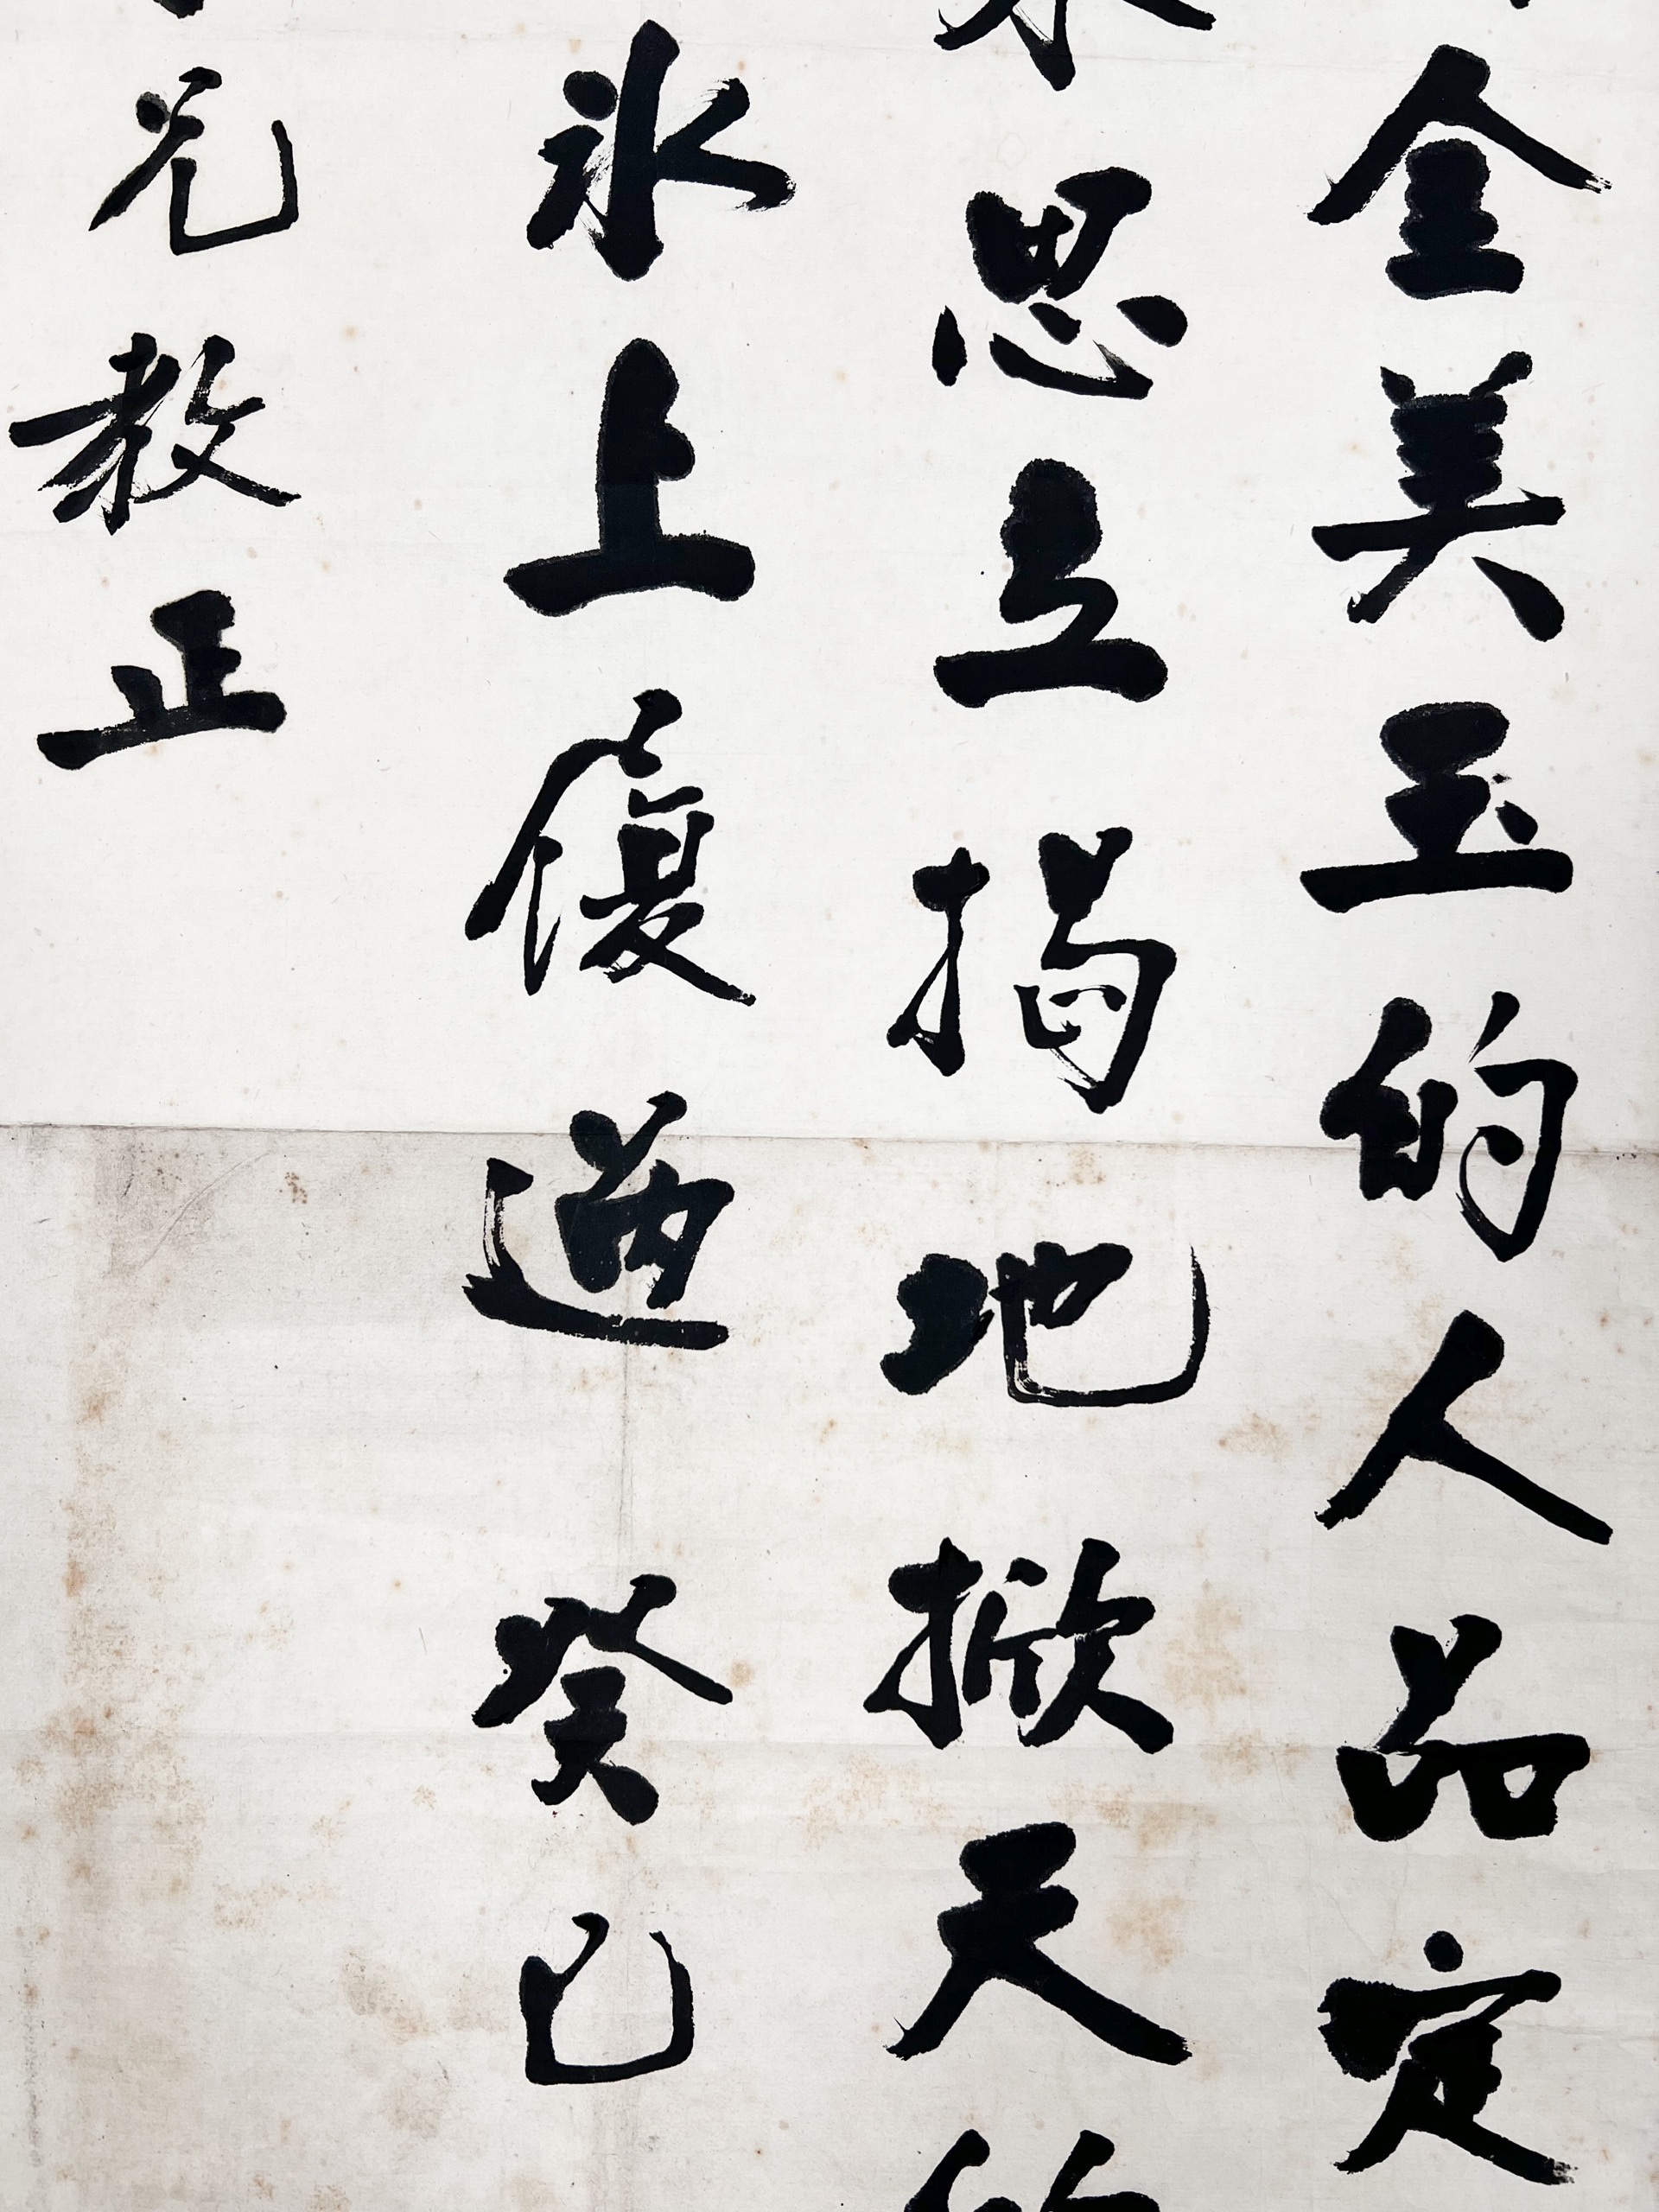 金美玉的人品定
思立揭地掀天
氷上履過癸巳
兄教正